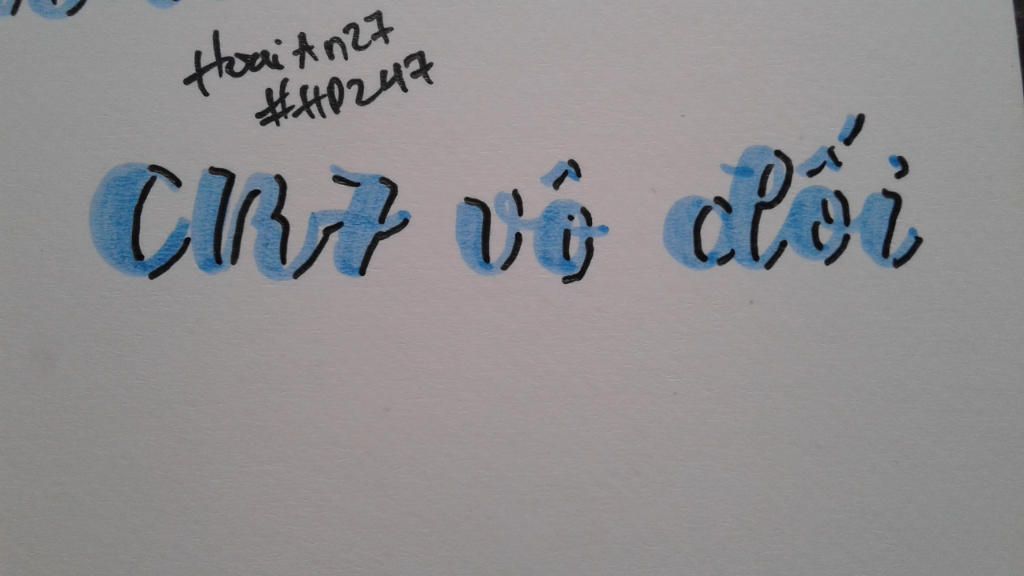 HoaiAn27
#HP247
CR7 vô đối